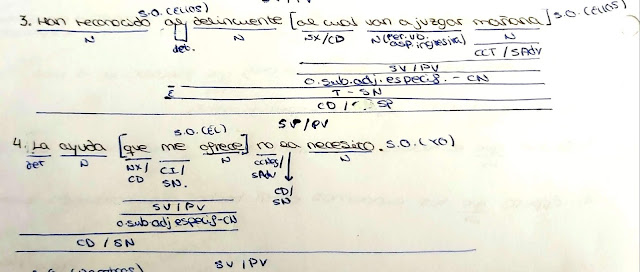 S.O. (ELLOS)
3. Han reconocido al delincuente [al cual van a juzgar mañana] S.O. (ELLOS)
N det. N NX/CD N (per. vb. asp. ingresiva) N
CCT / SAdv
SV / PV
O. sub. adj. especif. - CN
E T - SN
CD / SP
SV / PV
S.O. (ÉL)
4. La ayuda [que me ofrece] no la necesito. S.O. (YO)
det N NX/ CI/ N CCNeg/ N
CD SN. SAdv
CD/
SN
SV / PV
O sub adj especif - CN
CD / SN
SV / PV